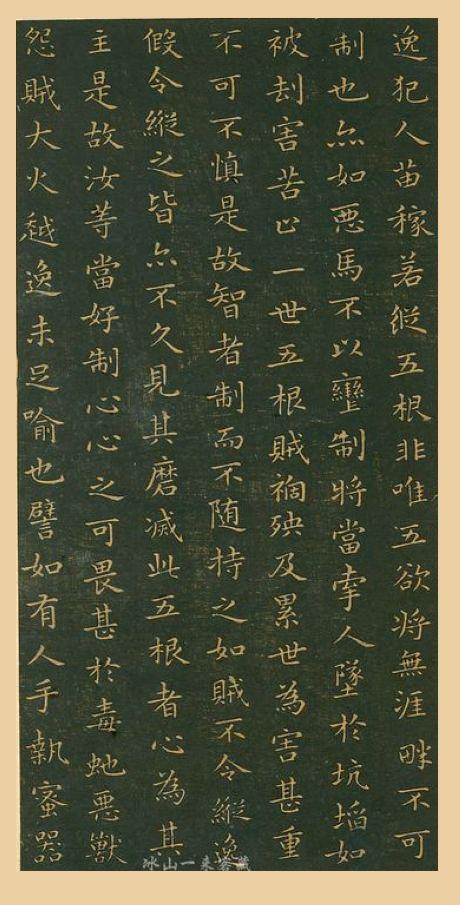 逸犯人苗稼若縱五根非唯五欲將無涯畔不可
制也亦如惡馬不以轡制將當牽人墜於坑埳如
被劫害苦止一世五根賊禍殃及累世為害甚重
不可不慎是故智者制而不随持之如賊不令縱逸
假令縱之皆亦不久見其磨滅此五根者心為其
主是故汝等當好制心心之可畏甚於毒虵惡獸
怨賊大火越逸未足喻也譬如有人手執蜜器
冰山一来客藏